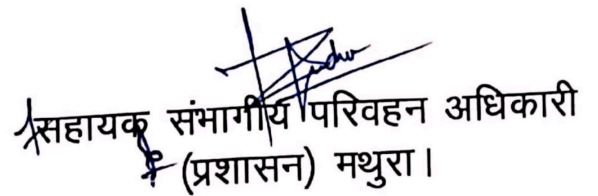 सहायक संभागीय परिवहन अधिकारी
(प्रशासन) मथुरा।